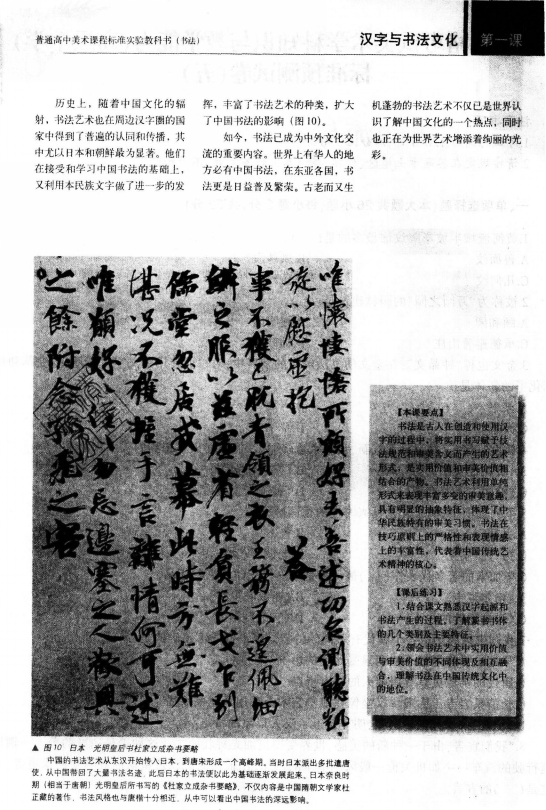 普通高中美术课程标准实验教科书(书法)
汉字与书法文化
第一课
历史上，随着中国文化的辐
射，书法艺术也在周边汉字圈的国
家中得到了普遍的认同和传播，其
中尤以日本和朝鲜最为显著。他们
在接受和学习中国书法的基础上，
又利用本民族文字做了进一步的发
挥，丰富了书法艺术的种类，扩大
了中国书法的影响(图10)。
如今，书法已成为中外文化交
流的重要内容。世界上有华人的地
方必有中国书法，在东亚各国，书
法更是日益普及繁荣。古老而又生
机蓬勃的书法艺术不仅已是世界认
识了解中国文化的一个热点，同时
也正在为世界艺术增添着绚丽的光
彩。
唯懐悽愴所願好去善述功名側聴凱
旋以慰西抱
答
事不獲已既青領之衣王務不遑佩細
儒堂忽居戎幕此時方無難
堪况不獲握手言離情何可述
唯願好
勿忘邊塞之人歡與
之餘附念
【本课要点】
书法是古人在创造和使用汉
字的过程中，将实用书写赋于技
法规范和审美含义而产生的艺术
形式，是实用价值和审美价值相
结合的产物。书法艺术利用单纯
形式来表现丰富多变的审美意趣，
具有明显的抽象特征，体现了中
华民族特有的审美习惯。书法在
技巧原则上的严格性和表现情感
上的丰富性，代表着中国传统艺
术精神的核心。
【课后练习】
1.结合课文熟悉汉字起源和
书法产生的过程，了解篆隶书体
的几个类别及主要特征。
2.领会书法艺术中实用价值
与审美价值的不同体现及相互融
合，理解书法在中国传统文化中
的地位。
▲ 图10 日本 光明皇后书杜家立成杂书要略
中国的书法艺术从东汉开始传入日本，到唐宋形成一个高峰期。当时日本派出多批遣唐
使，从中国带回了大量书法名迹，此后日本的书法便以此为基础逐渐发展起来。日本奈良时
期(相当于唐朝)光明皇后所书写的《杜家立成杂书要略》，不仅内容是中国隋朝文学家杜
正藏的著作，书法风格也与唐楷十分相近，从中可以看出中国书法的深远影响。